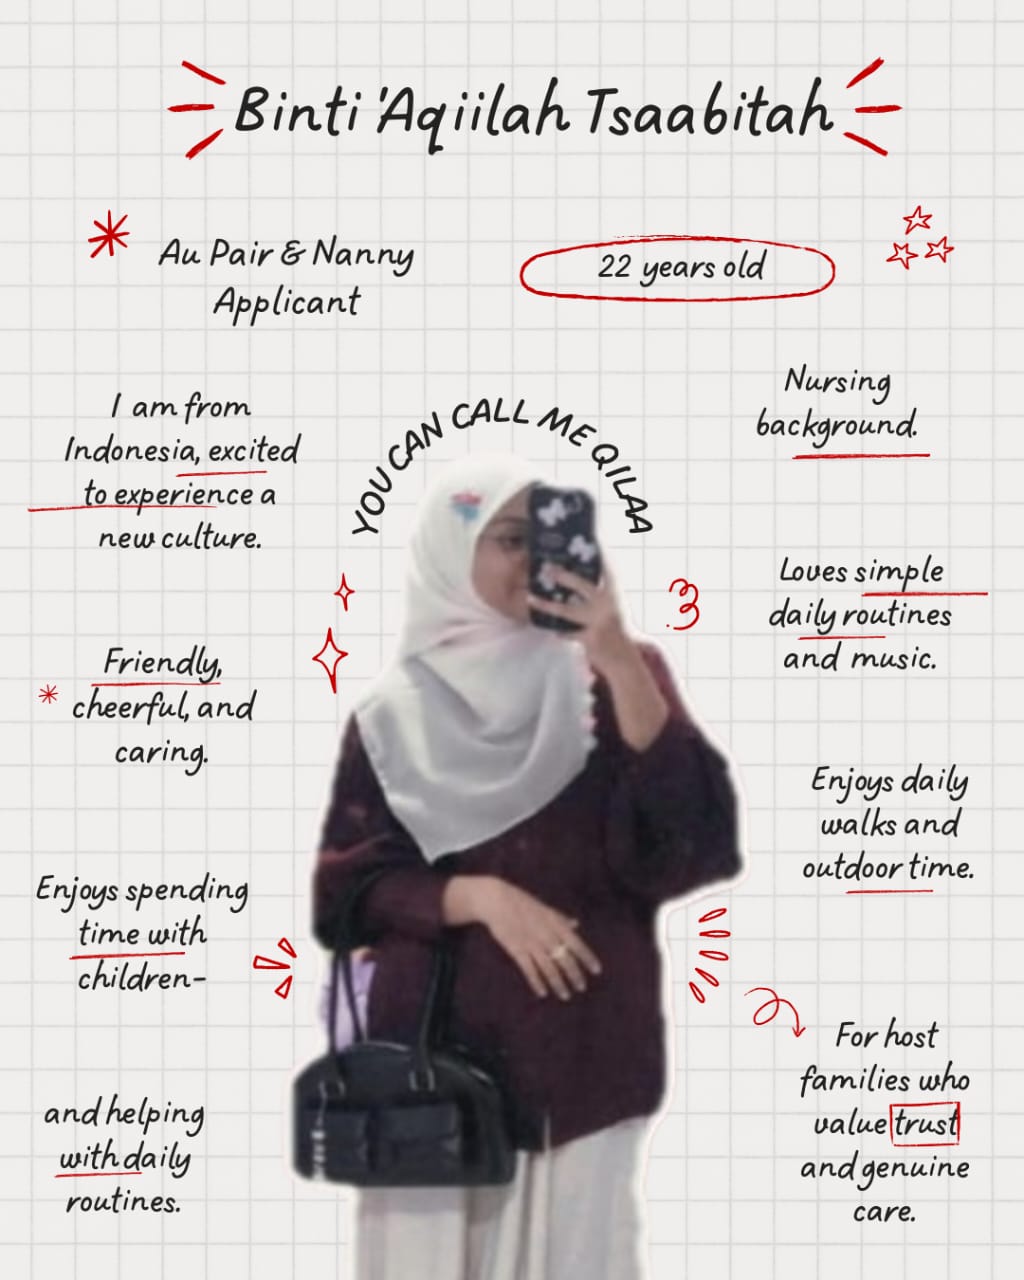 Binti 'Aqiilah Tsaabitah
Au Pair & Nanny
Applicant
22 years old
I am from
Indonesia, excited
to experience a
new culture.
YOU CAN CALL ME QILAA
Nursing
background.
Friendly,
cheerful, and
caring.
Loves simple
daily routines
and music.
Enjoys spending
time with
children-
Enjoys daily
walks and
outdoor time.
and helping
with daily
routines.
For host
families who
value trust
and genuine
care.